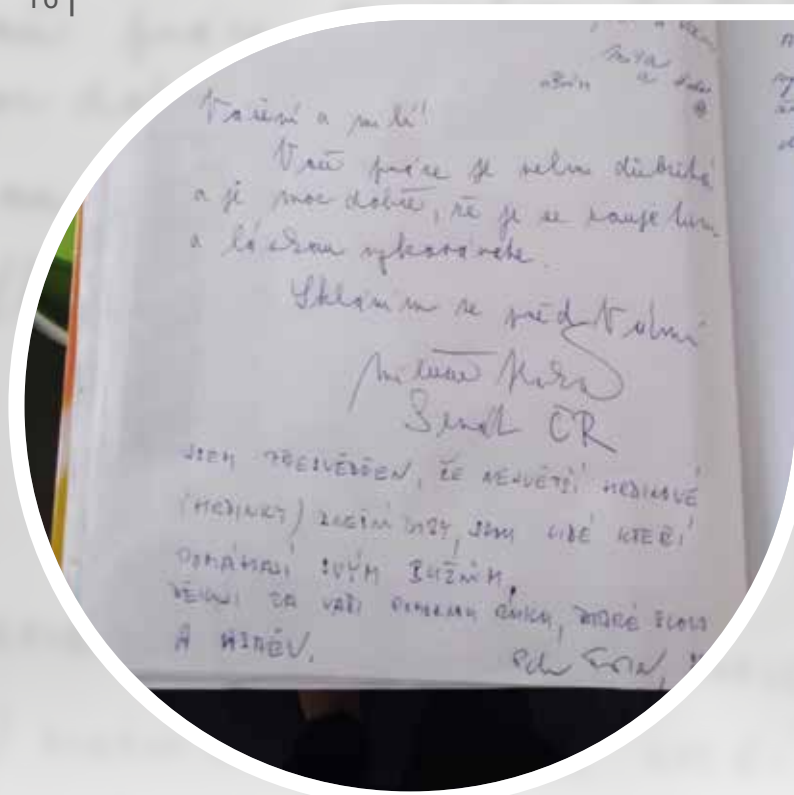 16 |
Vážení a milí!
Vaše práce je velmi důležitá
a je moc dobře, že je se zaujetím
a láskou vykonáváte.
Skláním se před Vámi
Senát ČR
JSEM PŘESVĚDČEN, ŽE NEJVĚTŠÍ HRDINOVÉ
(HRDINKY) DNEŠNÍ DOBY, JSOU LIDÉ KTEŘÍ
POMÁHAJÍ SVÝM BLIŽNÍM.
DĚKUJI ZA VAŠI POMOCNOU RUKU, DOBRÉ SLOVO
A ÚSMĚV.